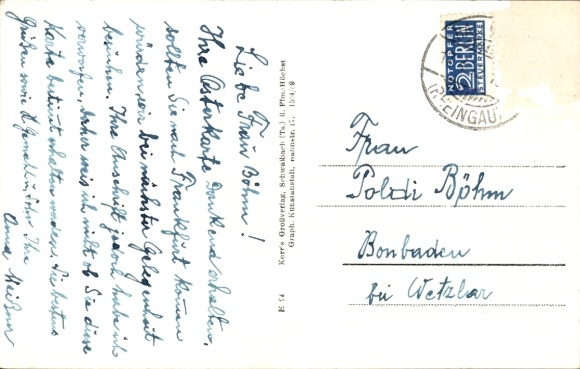 Liebe Frau Böhm!
Ihre Osterkarte Dankend erhalten,
sollten Sie nach Frankfurt kommen
würden wir bei nächster Gelegenheit
besuchen. Ihre Anschrift jedoch habe ich
verworfen, daher weis ich nicht ob Sie diese
Karte bestimmt erhalten werden. Sie bestens
Grüßen sowie H. Gemahl u. Sohn Ihre
Anna Meißner
Kerr's Großverlag, Schwalbach (Ts.) ü. Ffm.-Höchst
Graph. Kunstanstalt,
E 54
NOTOPFER
2 BERLIN
STEUERMARKE
(RHEINGAU)
Frau
Poldi Böhm
Bonbaden
bei Wetzlar